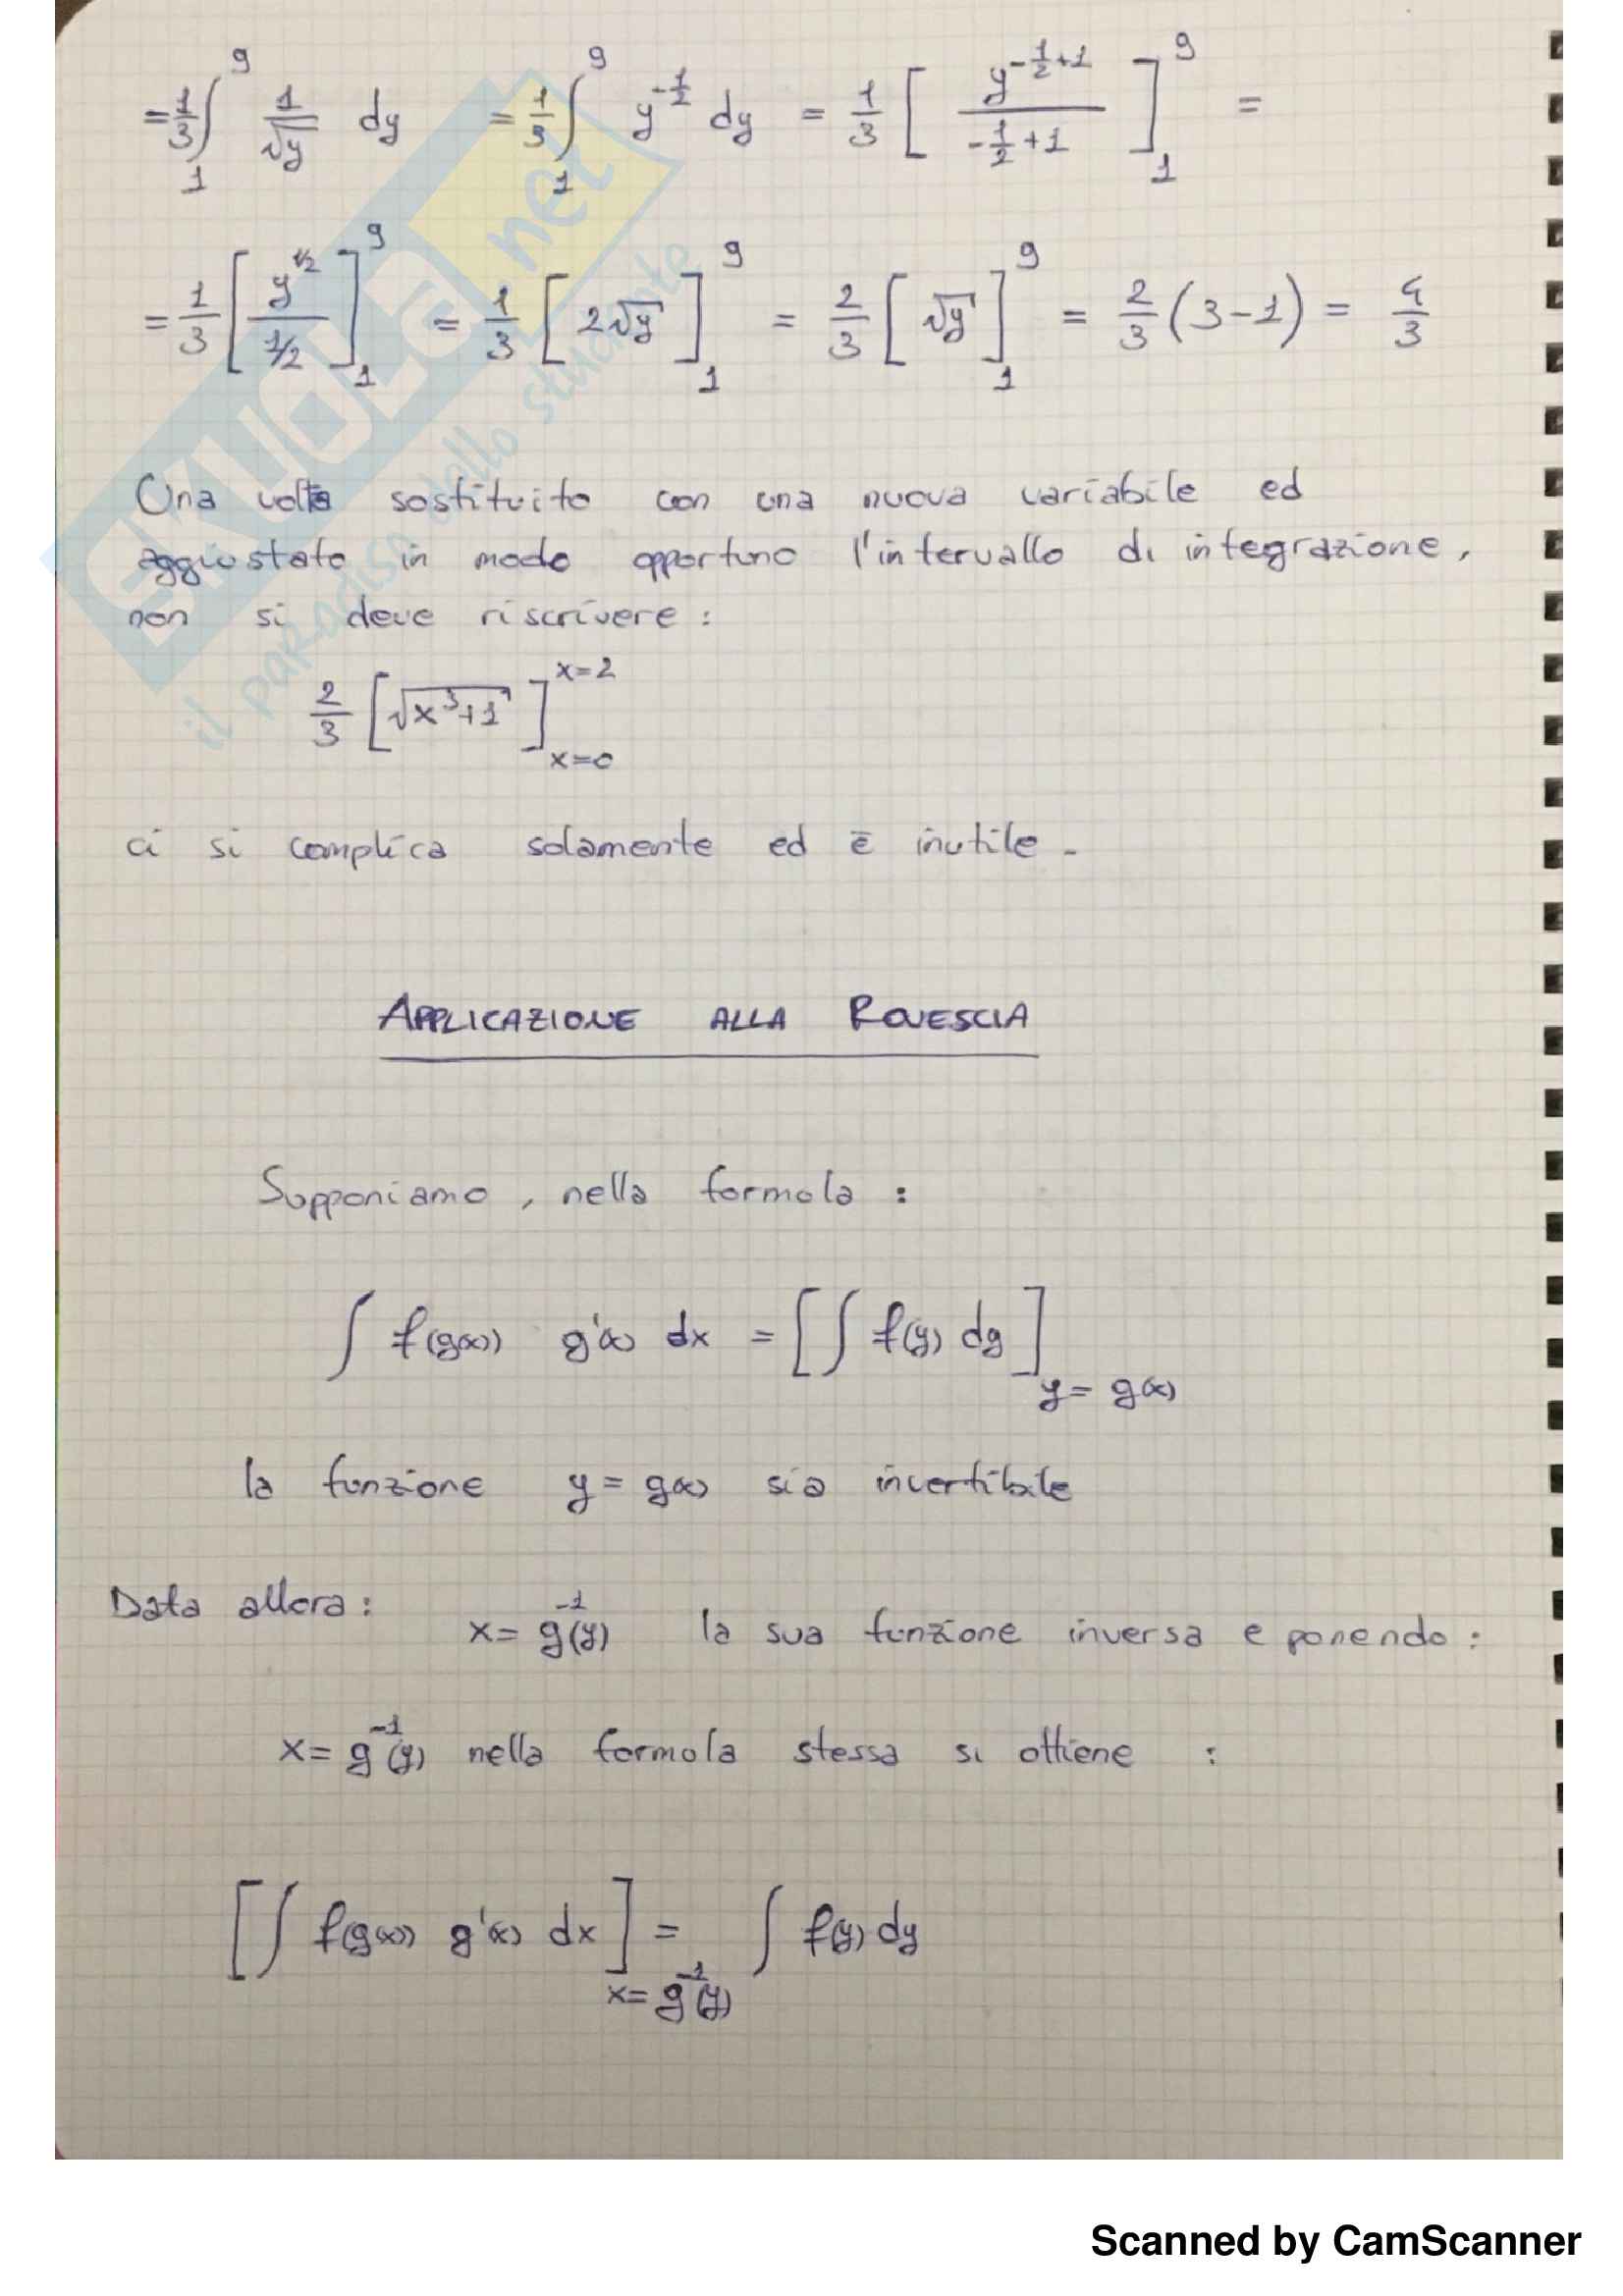 = 1/3 ∫₁⁹ 1/√y dy = 1/3 ∫₁⁹ y^(-1/2) dy = 1/3 [ y^(-1/2+1) / (-1/2+1) ]₁⁹ =
= 1/3 [ y^(1/2) / (1/2) ]₁⁹ = 1/3 [ 2√y ]₁⁹ = 2/3 [ √y ]₁⁹ = 2/3 (3-1) = 4/3
Una volta sostituito con una nuova variabile ed
aggiustato in modo opportuno l'intervallo di integrazione,
non si deve riscrivere :
2/3 [ √(x³+1) ] x=2 x=0
ci si complica solamente ed è inutile.
APPLICAZIONE ALLA ROVESCIA
Supponiamo, nella formula :
∫ f(g(x)) g'(x) dx = [ ∫ f(y) dy ] y= g(x)
la funzione y= g(x) sia invertibile
Data allora : x= g⁻¹(y) la sua funzione inversa e ponendo :
x= g⁻¹(y) nella formula stessa si ottiene :
[ ∫ f(g(x)) g'(x) dx ] x= g⁻¹(y) = ∫ f(y) dy
SKUOLA.net
il paradiso dello studente
Scanned by CamScanner